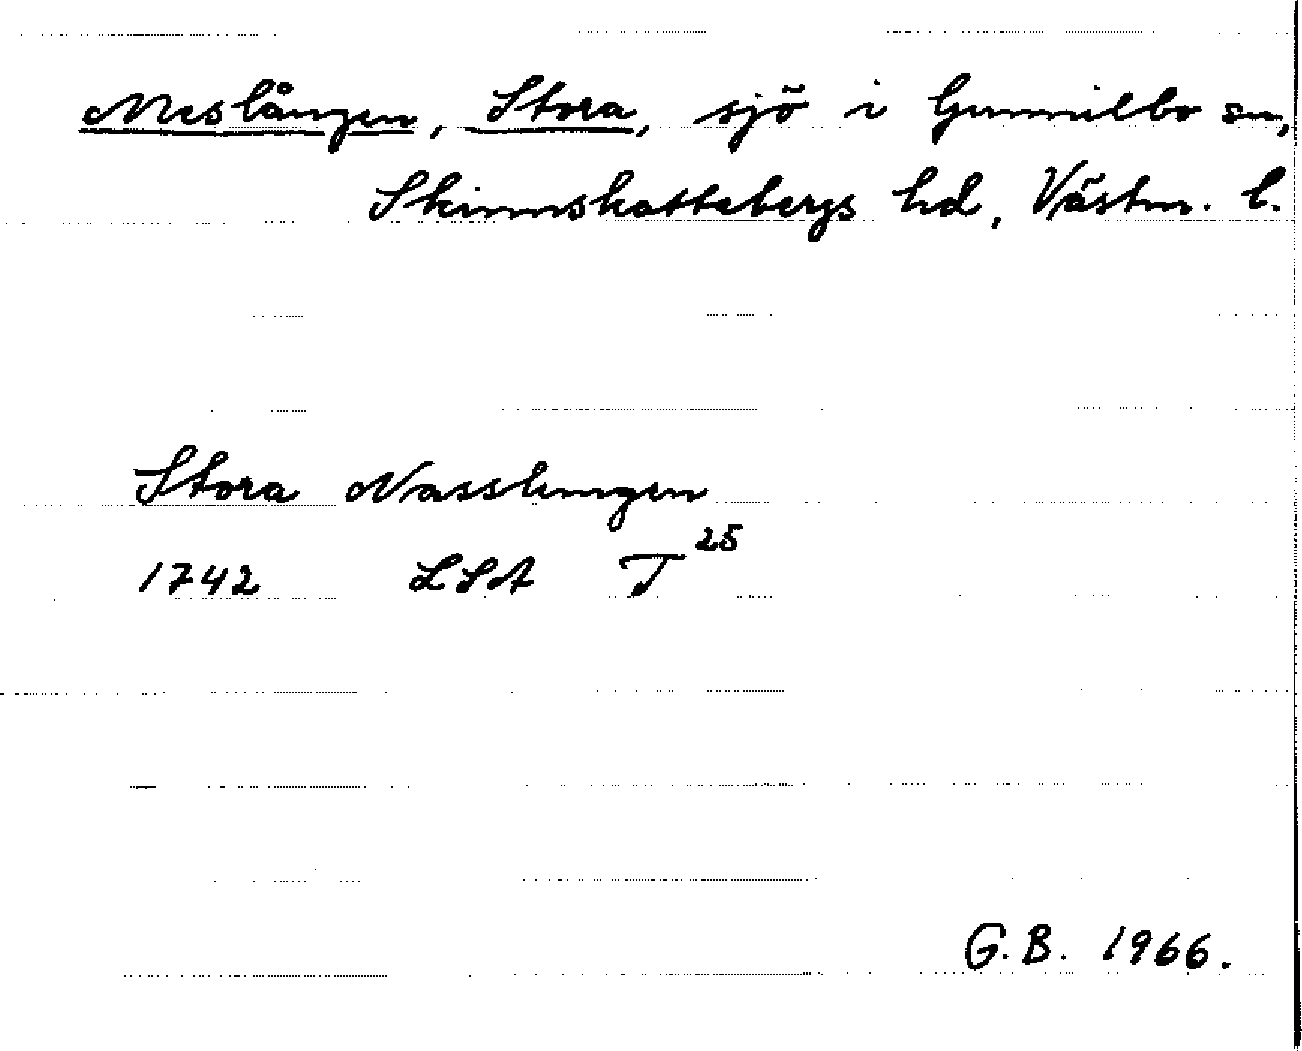 Meslången, Stora, sjö i Gunnilbo sn,
Skinnskattebergs hd, Västm. l.
Stora Nasslingen
1742 LSA T²⁵
G.B. 1966.